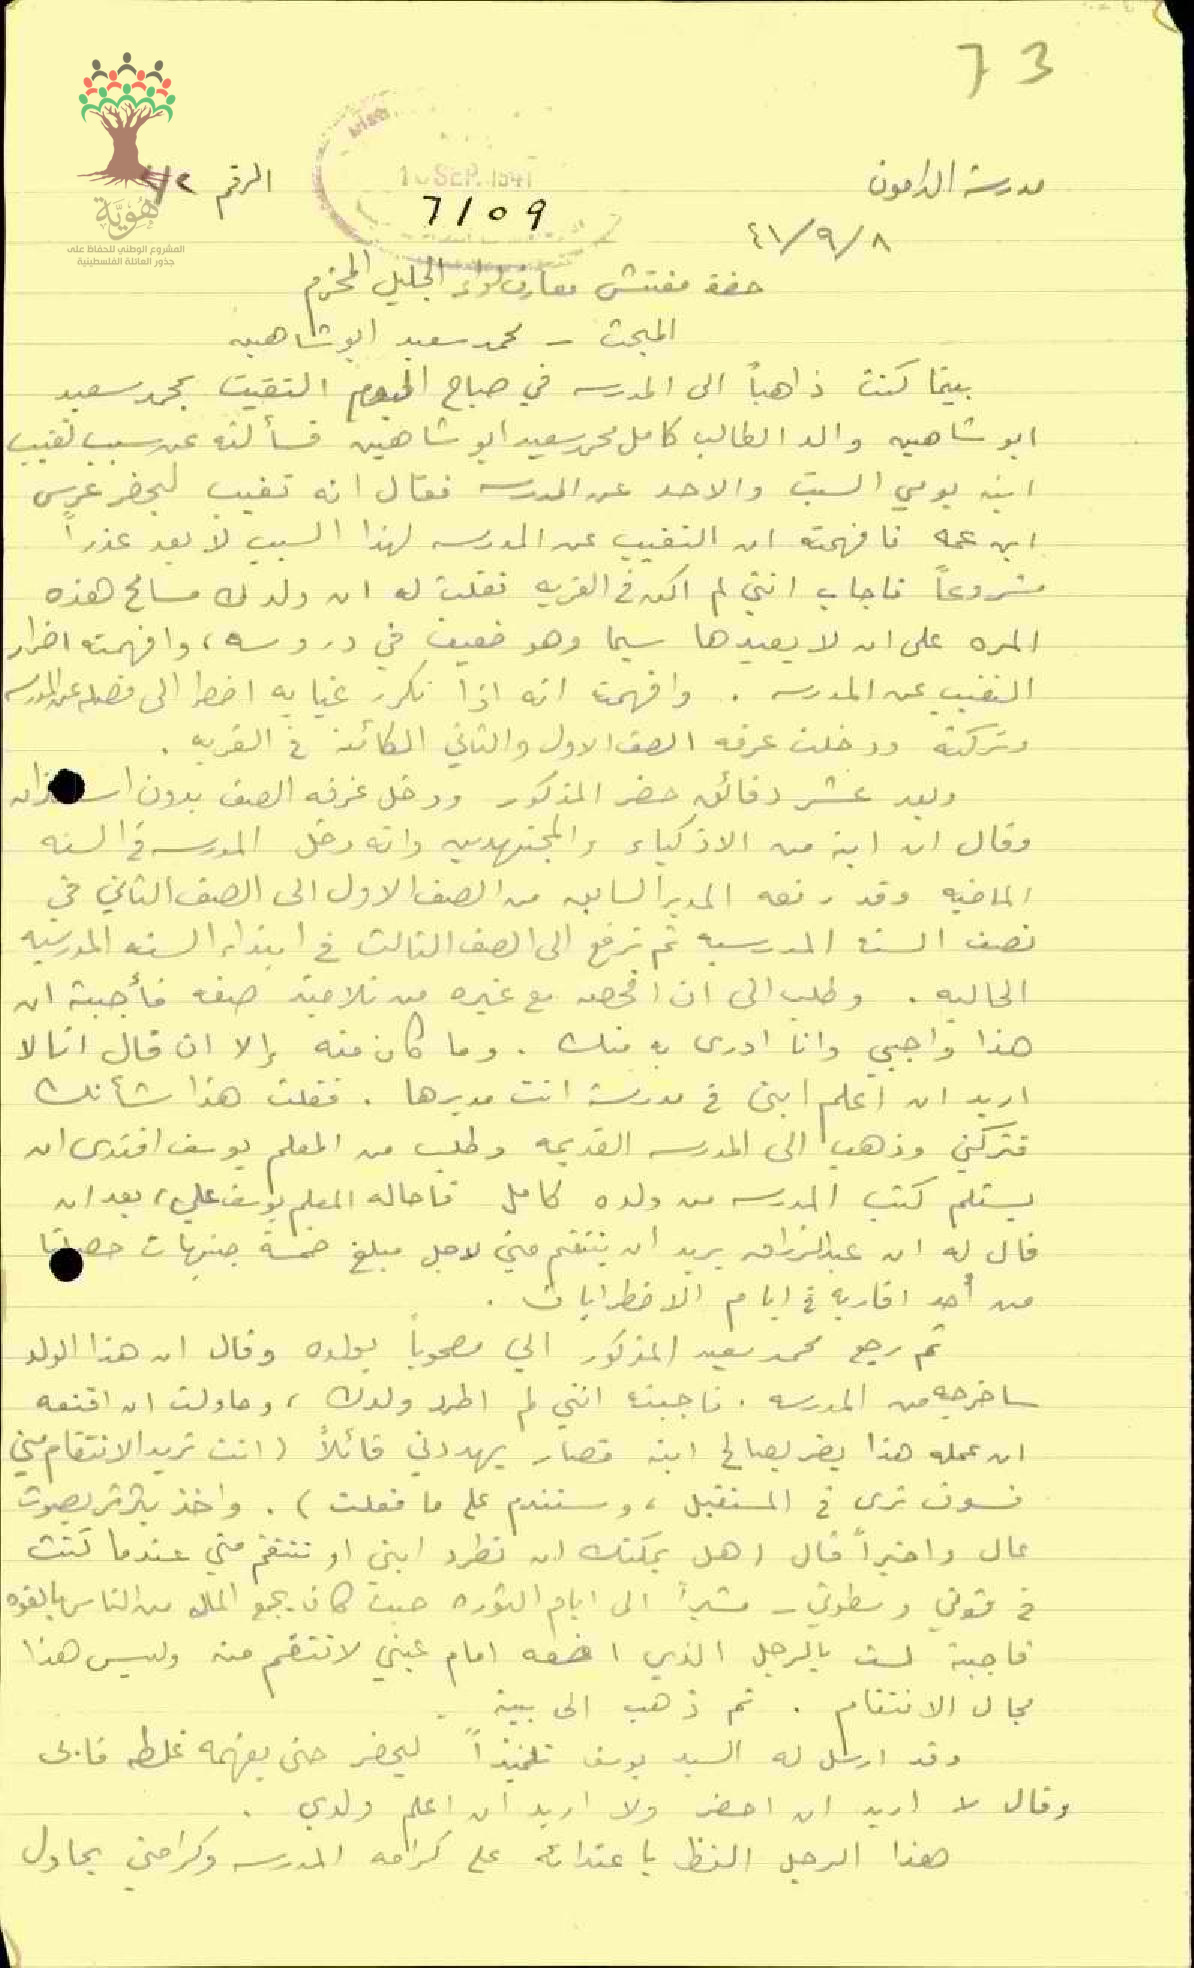 73
مدرسة الدامون
الرقم ٢/
10 SEP. 1941
7109
٤١/٩/٨
هُوِيَّة
المشروع الوطني للحفاظ على
جذور العائلة الفلسطينية
حضرة مفتش معارف لواء الجليل المحترم
المبحث - محمد سعيد ابو شاهين
بينما كنت ذاهباً الى المدرسه في صباح اليوم التقيت بمحمد سعيد
ابو شاهين والد الطالب كامل محمد سعيد ابو شاهين فسألته عن سبب تغيب
ابنه يومي السبت والاحد عن المدرسه فقال انه تغيب ليحضر عرس
ابن عمه فافهمته ان التغيب عن المدرسه لهذا السبب لا يعد عذراً
مشروعاً فاجاب انني لم اكن في القريه فقلت له ان ولدك مسامح هذه
المره على ان لا يعيدها سيما وهو ضعيف في دروسه، وافهمته اضرار
التغيب عن المدرسه . وافهمت انه اذا تكرر غيابه اضطر الى فصله عن المدرسه
وتركته ودخلت غرفه الصف الاول والثاني الكائنة في القريه .
وبعد عشر دقائق حضر المذكور ودخل غرفه الصف بدون استئذان
وقال ان ابنه من الاذكياء والمجتهدين وانه دخل المدرسه في السنه
الماضيه وقد رفعه المدير السابق من الصف الاول الى الصف الثاني في
نصف السنه المدرسيه ثم ترفع الى الصف الثالث في ابتداء السنه المدرسيه
الحاليه . وطلب الى ان افحصه مع غيره من تلاميذ صفه فأجبته ان
هذا واجبي وانا ادرى به منك . وما كان منه إلا ان قال انا لا
اريد ان اعلم ابني في مدرسة انت مديرها . فقلت هذا شأنك
فتركني وذهب الى المدرسه القديمه وطلب من المعلم يوسف افندى ان
يستلم كتب المدرسه من ولده كامل فاحاله المعلم يوسف علي، بعد ان
قال له ان عبد الرزاق يريد ان ينتقم مني لاجل مبلغ خمسة جنيهات حصلتها
من أحد اقاربه في ايام الاضطرابات .
ثم رجع محمد سعيد المذكور الي مصحوباً بولده وقال ان هذا الولد
ساخرجه من المدرسه . فاجبته انني لم اطرد ولدك ، وحاولت ان اقنعه
ان عمله هذا يضر بصالح ابنه فصار يهددني قائلاً (انت تريد الانتقام مني
فسوف ترى في المستقبل ، وستندم على ما فعلت ) . واخذ يثرثر بصوت
عال واخيراً قال (هل يمكنك ان تطرد ابني او تنتقم مني عندما كنت
في قوتي وسطوتي - مشيراً الى ايام الثوره حيث كان يجمع المال من الناس بالقوه
فاجبته لست بالرجل الذي اضعه امام عيني لانتقم منه وليس هذا
مجال الانتقام . ثم ذهب الى بيته .
وقد ارسل له السيد يوسف تلميذاً ليحضر حتى يفهمه غلطه فابى
وقال لا اريد ان احضر ولا اريد ان اعلم ولدي .
هذا الرجل الفظ باعتدائه على كرامه المدرسه وكرامتي يحاول